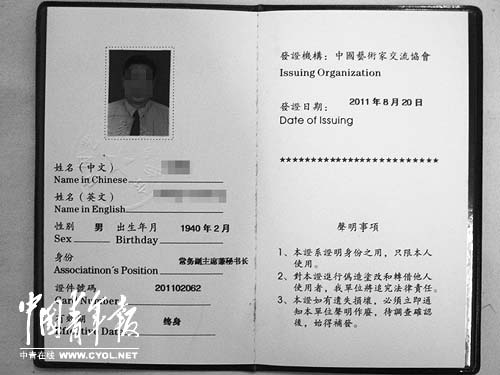 姓名（中文）
Name in Chinese
姓名（英文）
Name in English
性别 男 出生年月 1940年2月
Sex Birthday
身份 常务副主席兼秘书长
Associatinon's Position
證件號碼 201102062
Card Number
有效期 终身
Effective Date
中國青年报
中青在线 WWW.CYOL.NET
發證機構：中國藝術家交流協會
Issuing Organization
發證日期： 2011年8月20日
Date of Issuing
*************************
聲明事項
1、本證系證明身份之用，只限本人
使用。
2、對本證進行偽造塗改和轉借他人
使用者，我單位將追究法律責任。
3、本證如有遺失損壞，必須立即通
知本單位聲明作廢，待調查確認
後，始得補發。